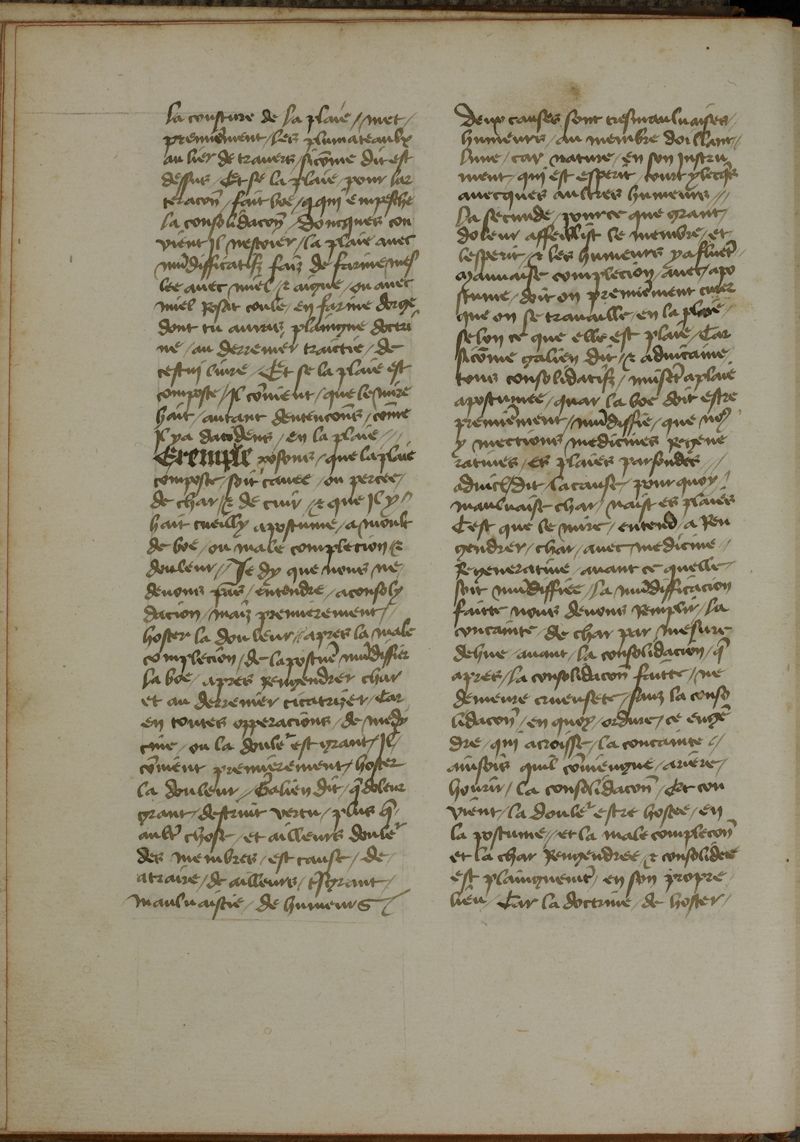 la cousture de la plaie // met /
premierement / les plumateaulx
au lieu de travers / sicōme dit est
dessus / Et se la plaie / pour lar
teracoñ / fait boe / q qui empesche
la consolidacoñ / Doncques con
vient Il nestoier / la plaie avec
mūdifficatifz faiz de farine mes
lee avec miel / & aigue / ou avec
miel rosat coule / en farine dorge
dont tu auras plaingne doctri
ne / au derrenier traictie / de
cestui livre / Et se la plaie est
composte / Il cōvient / que le mire
hait / autant dentencons / cōme
Il ya daccidens / en la plaie //
Exemple posons / que la plaie
composte / soit cavee / ou percee /
de char / & de cuir / & que Il y /
hait cueilly apostume / a moult
de boe / ou male complecion &
douleur // Je dy que nous ne /
devons pas / entendre / a consoly
dacion / maiz premierement /
hoster la douleur // apres la male
complecion / de lapostuē mūdiffier
la boe / apres rengendrer char
et au derrenier cicatrizer / Car
en toutes opperacions / de medy
cine / ou la doulēr est grant / Il
cōvient premierement / hoster
la douleur // Galien dit / q̄ doleur
grant / destruit vertu / plus q̄
aultr̄ chose / et ailleurs doulēr
des membres / est cause / de /
atraire / de ailleurs / tsgrant /
mauluaistie / de humeurs /
Deux causes sont tresmauluaises /
humeurs / au membre doillant //
Lune / car nature / en son Instru
ment / qui est esperit / court ylecqs
avecques aultres humeurs //
La seconde / pource que grant /
doleur affeiblist le membre / et
lesperit / & les humeurs y afluēt /
Mauvaise complecion / avec apo
stume / doit on premierement curer
que on se travaille / en la plaie /
selon ce que elle est plaie / Car
sicōme galien dit / & advicaine /
tous consolidatifz / nuisēt a plaie
apostumee / quar la boe doit estre
premierement / mūdiffie / que no9
y mections medicines regene
ratives / es plaies parfondes //
advicē / dit / la cause / pour quoy /
mauluaise char / naist es plaies
Cest que le mire / entend a ren
gendrer / char / avec medicine //
Regenerative / avant ce quelle
soit mūdiffiee / la mūdifficacion
faitte nous devons remplir / la
concavite / de char par mesure
dehue / avant / la consolidacion / q̄
apres / la consolidacoñ faitte / ne
demeure creusete / souz la conso
lidacoñ / en quoy / ordure / ce engē
dre / qui acroisse / la concavite //
ainsois quil cōviengne / ariere /
houvrir / la consolidacoñ / Et con
vient / la doulēr estre hostee / en
la postume // et la male complecoñ
et la char rengendree / & consolidee
est plaingnemēt / en son propre /
lieu / Car la doctrine / de hoster /